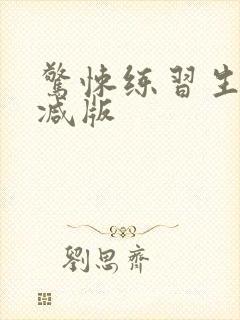 驚悚练習生
减版
劉思齊